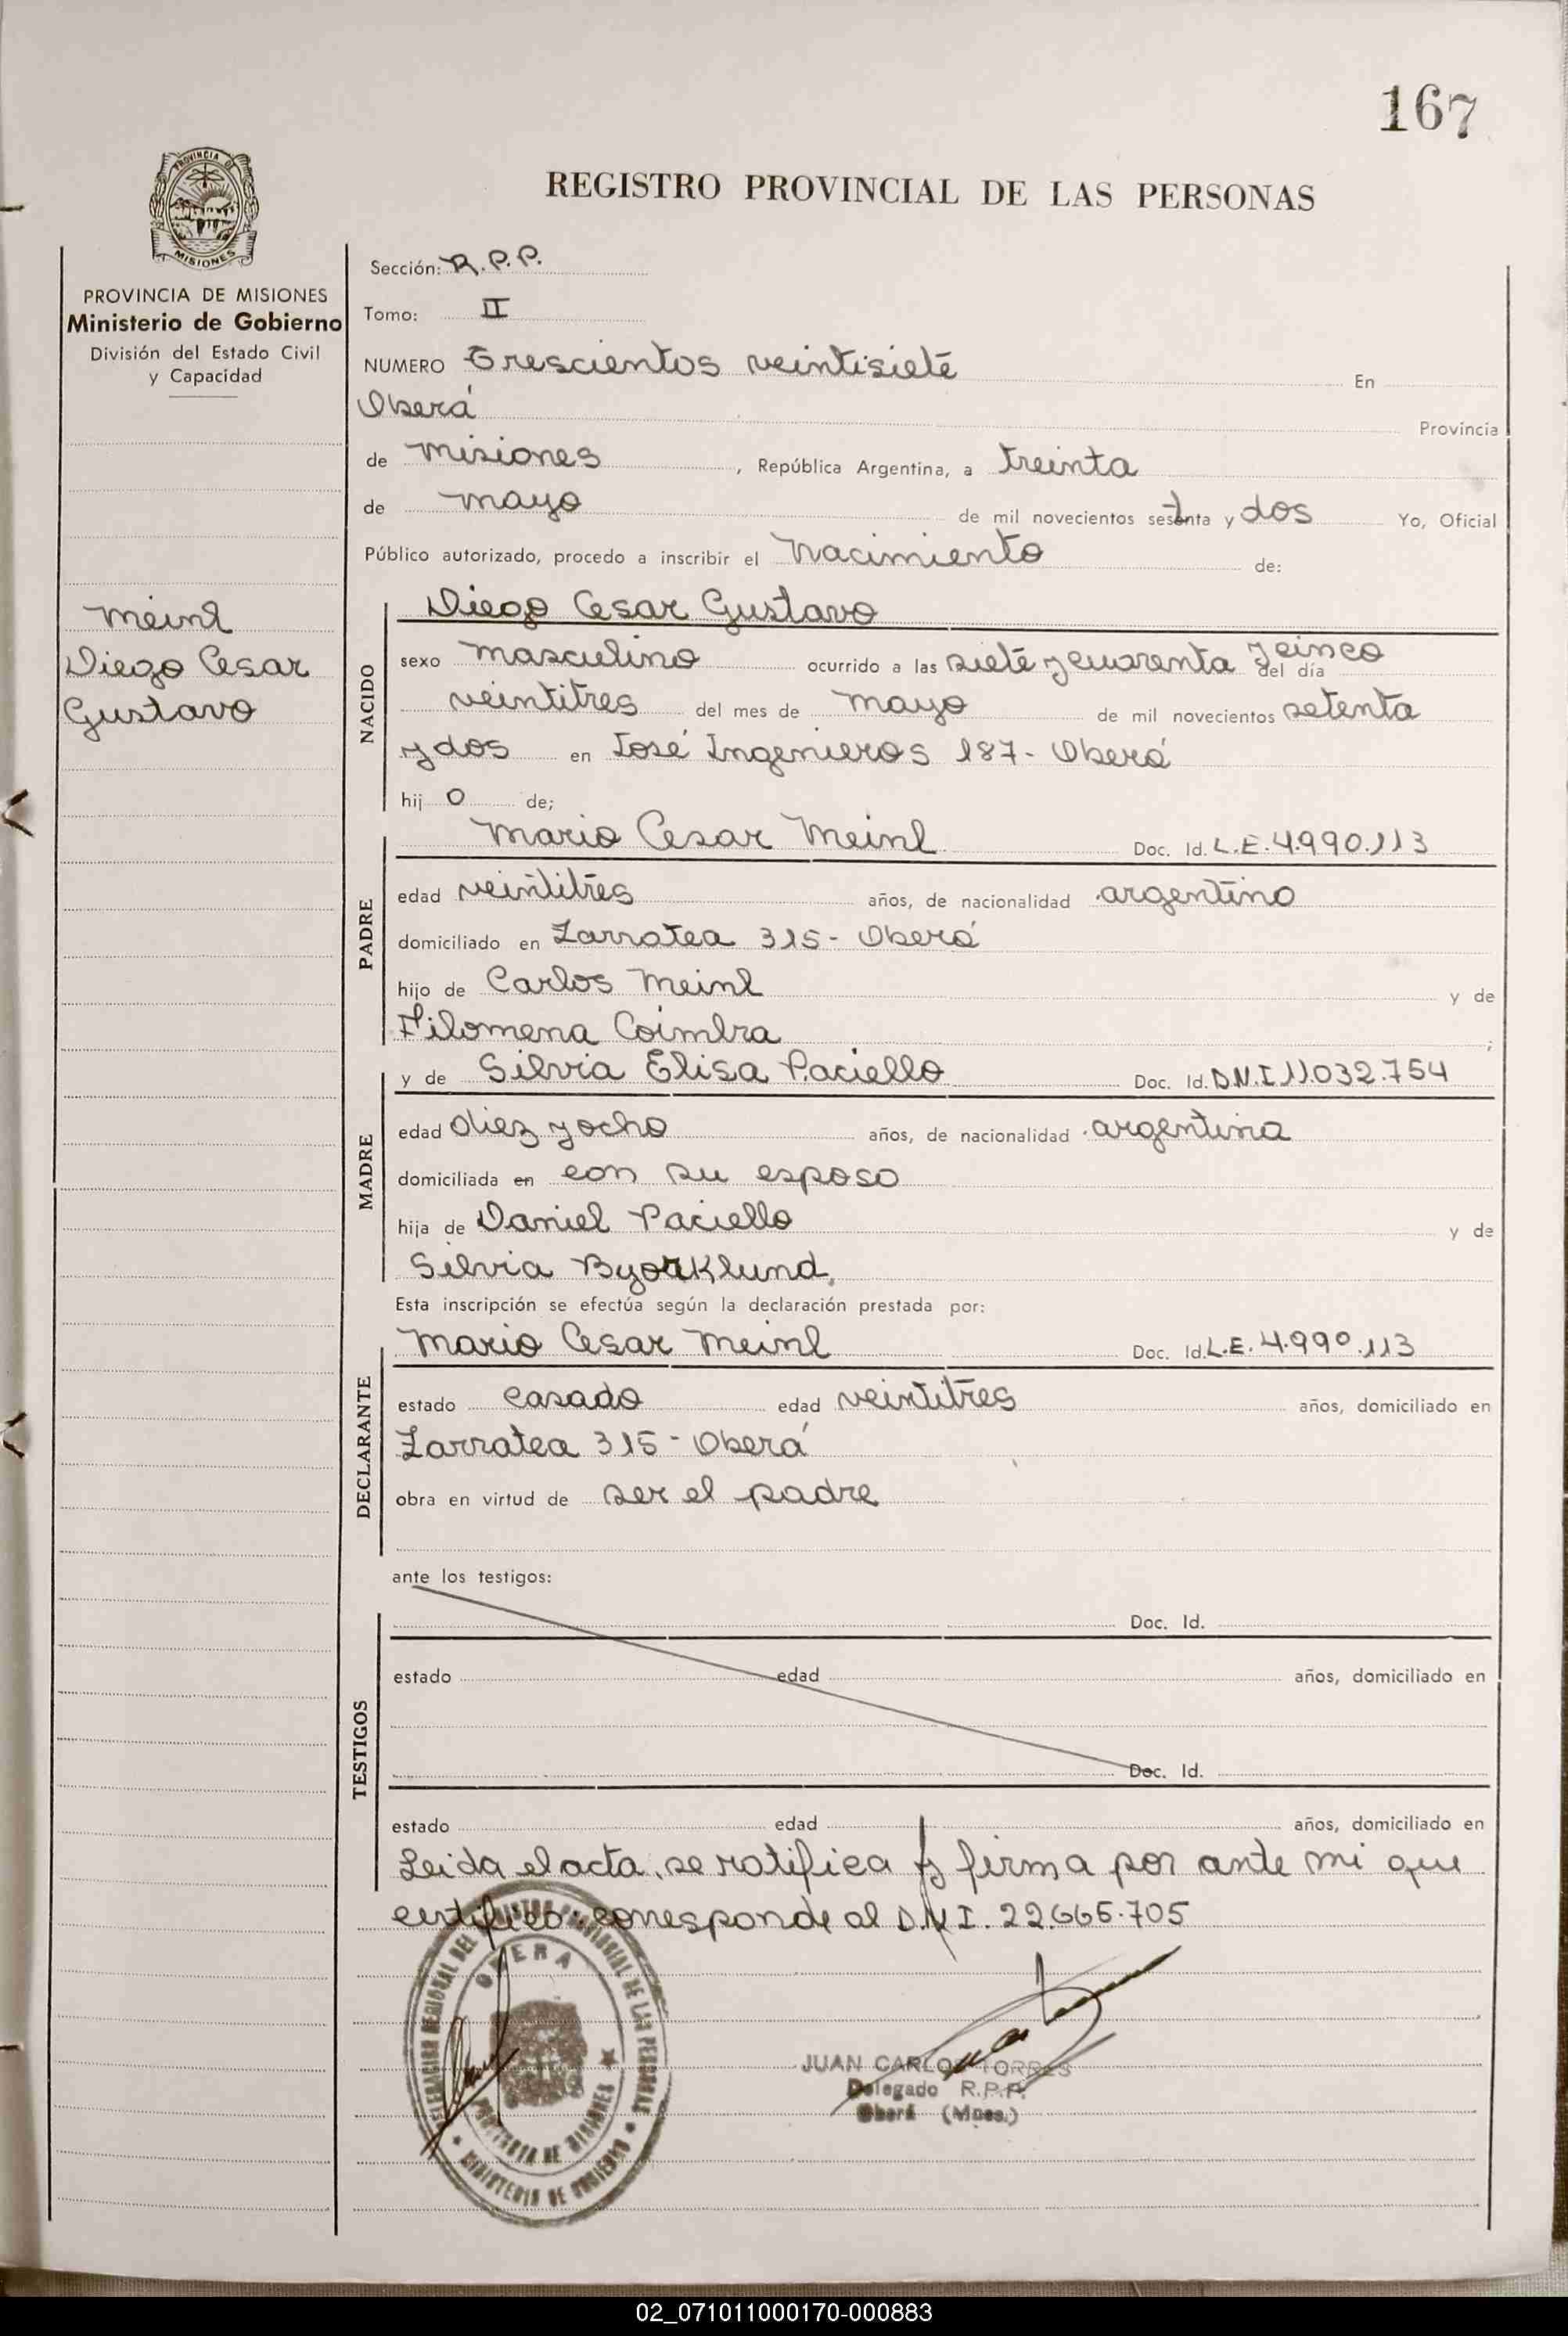 167
PROVINCIA DE
MISIONES
REGISTRO PROVINCIAL DE LAS PERSONAS
PROVINCIA DE MISIONES
Ministerio de Gobierno
División del Estado Civil
y Capacidad
Meinl
Diego Cesar
Gustavo
Sección: R.P.P.
Tomo: II
NUMERO Trescientos veintisiete En
Oberá Provincia
de Misiones, República Argentina, a treinta
de mayo de mil novecientos setenta y dos Yo, Oficial
Público autorizado, procedo a inscribir el Nacimiento de:
NACIDO
Diego Cesar Gustavo
sexo masculino ocurrido a las siete y cuarenta y cinco del día
veintitres del mes de mayo de mil novecientos setenta
y dos en José Ingenieros 187- Oberá
hij o de;
PADRE
Mario Cesar Meinl Doc. Id. L.E. 4.990.113
edad veintitres años, de nacionalidad argentino
domiciliado en Larratea 315- Oberá
hijo de Carlos Meinl y de
Filomena Coimbra ;
MADRE
y de Silvia Elisa Paciello Doc. Id. D.N.I 11.032.754
edad diez y ocho años, de nacionalidad argentina
domiciliada en con su esposo
hija de Daniel Paciello y de
Silvia Byorklund.
Esta inscripción se efectúa según la declaración prestada por:
DECLARANTE
Mario Cesar Meinl Doc. Id. L.E. 4.990.113
estado casado edad veintitres años, domiciliado en
Larratea 315 - Oberá
obra en virtud de ser el padre
ante los testigos:
TESTIGOS
Doc. Id.
estado edad años, domiciliado en
Doc. Id.
estado edad años, domiciliado en
Leida el acta, se ratifica y firma por ante mi que
certifico: corresponde al D.N.I. 22.665.705
REGIONAL DEL REGISTRO PROVINCIAL DE LAS PERSONAS
OBERA
PROVINCIA DE MISIONES
MINISTERIO DE GOBIERNO
JUAN CARLOS TORRES
Delegado R.P.P.
Oberá (Mnes.)
02_071011000170-000883